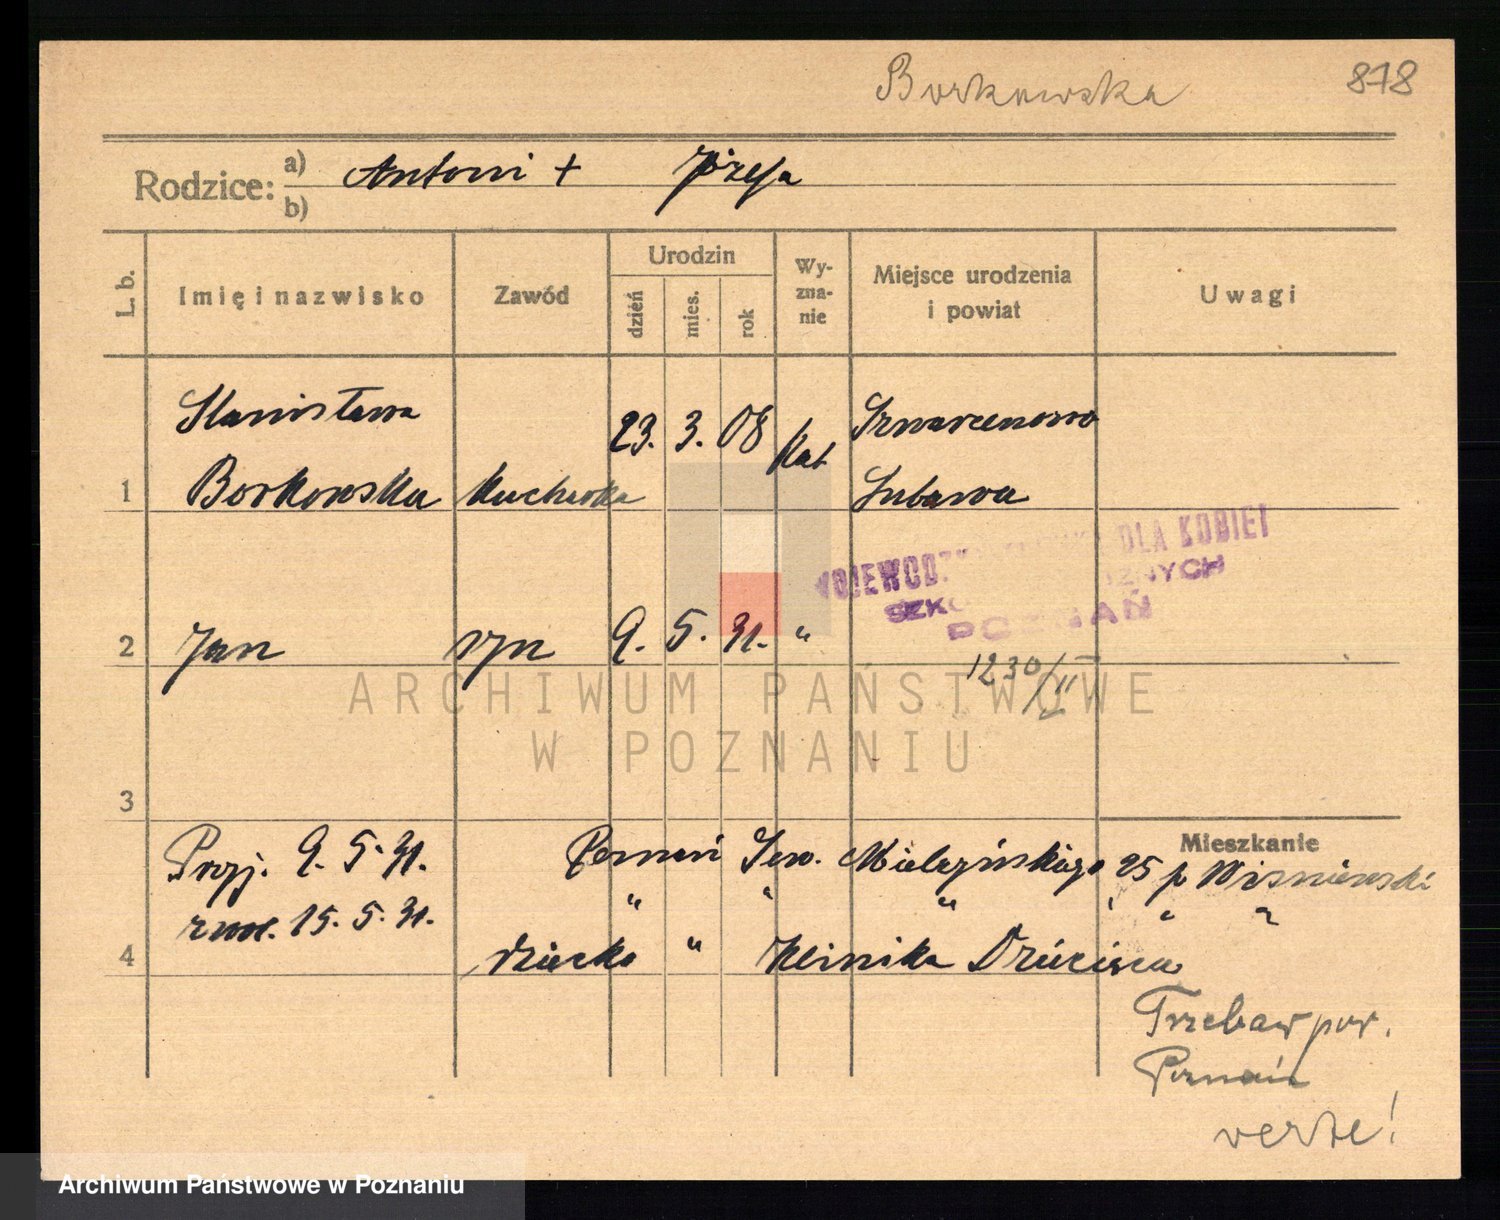 Borkowska 878
Rodzice: a) Antoni + Józefa
b)
L. b. Imię i nazwisko Zawód Urodzin dzień mies. rok Wyznanie Miejsce urodzenia i powiat Uwagi
Stanisława 23. 3. 08 kat
1 Borkowska kucharka Lubawa
WOJEWÓDZ DLA KOBIET
SZKO ZNYCH
POZNAŃ
2 Jan syn 9. 5. 31. "
1230/II
ARCHIWUM PAŃSTWOWE
W POZNANIU
3
Mieszkanie
Przyj. 9. 5. 31. Poznań Sew. Mielżyńskiego 25 p Wiśniewski
zwol. 15. 5. 31. " " " " " "
4 dziecko " Klinika Dziecięca
Trzebaw pow.
Poznań
verte!
Archiwum Państwowe w Poznaniu